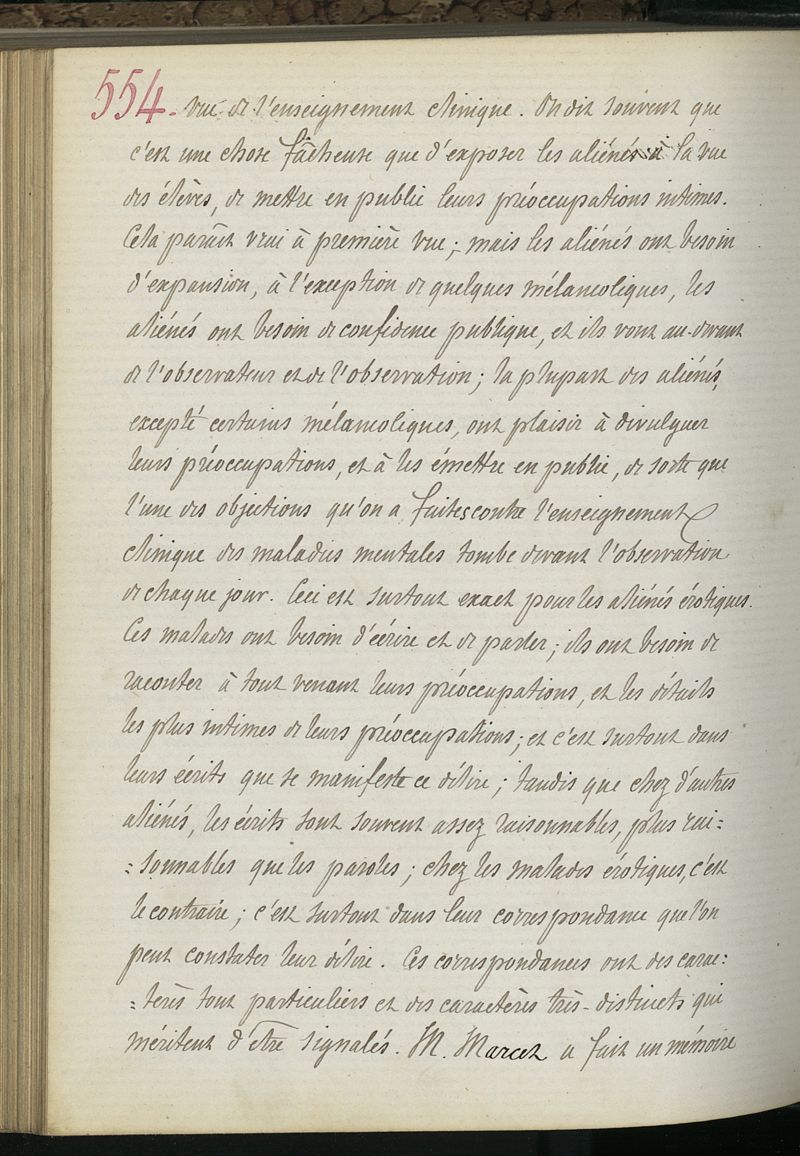 554.
vue de l'enseignement clinique. On dit souvent que
c'est une chose fâcheuse que d'exposer les aliénés à la vue
des élèves, de mettre en public leurs préoccupations intimes.
Cela paraît vrai à première vue; mais les aliénés ont besoin
d'expansion, à l'exception de quelques mélancoliques, les
aliénés ont besoin de confidence publique, et ils vont au-devant
de l'observateur et de l'observation; la plupart des aliénés,
excepté certains mélancoliques, ont plaisir à divulguer
leurs préoccupations, et à les émettre en public, de sorte que
l'une des objections qu'on a faites contre l'enseignement
clinique des maladies mentales tombe devant l'observation
de chaque jour. Ceci est surtout exact pour les aliénés érotiques.
Ces malades ont besoin d'écrire et de parler; ils ont besoin de
raconter à tout venant leurs préoccupations, et les détails
les plus intimes de leurs préoccupations; et c'est surtout dans
leurs écrits que se manifeste ce délire; tandis que chez d'autres
aliénés, les écrits sont souvent assez raisonnables, plus rai=
=sonnables que les paroles; chez les malades érotiques, c'est
le contraire; c'est surtout dans leur correspondance que l'on
peut constater leur délire. Ces correspondances ont des carac=
=tères tout particuliers et des caractères très-distincts qui
méritent d'être signalés. M. Marcet a fait un mémoire